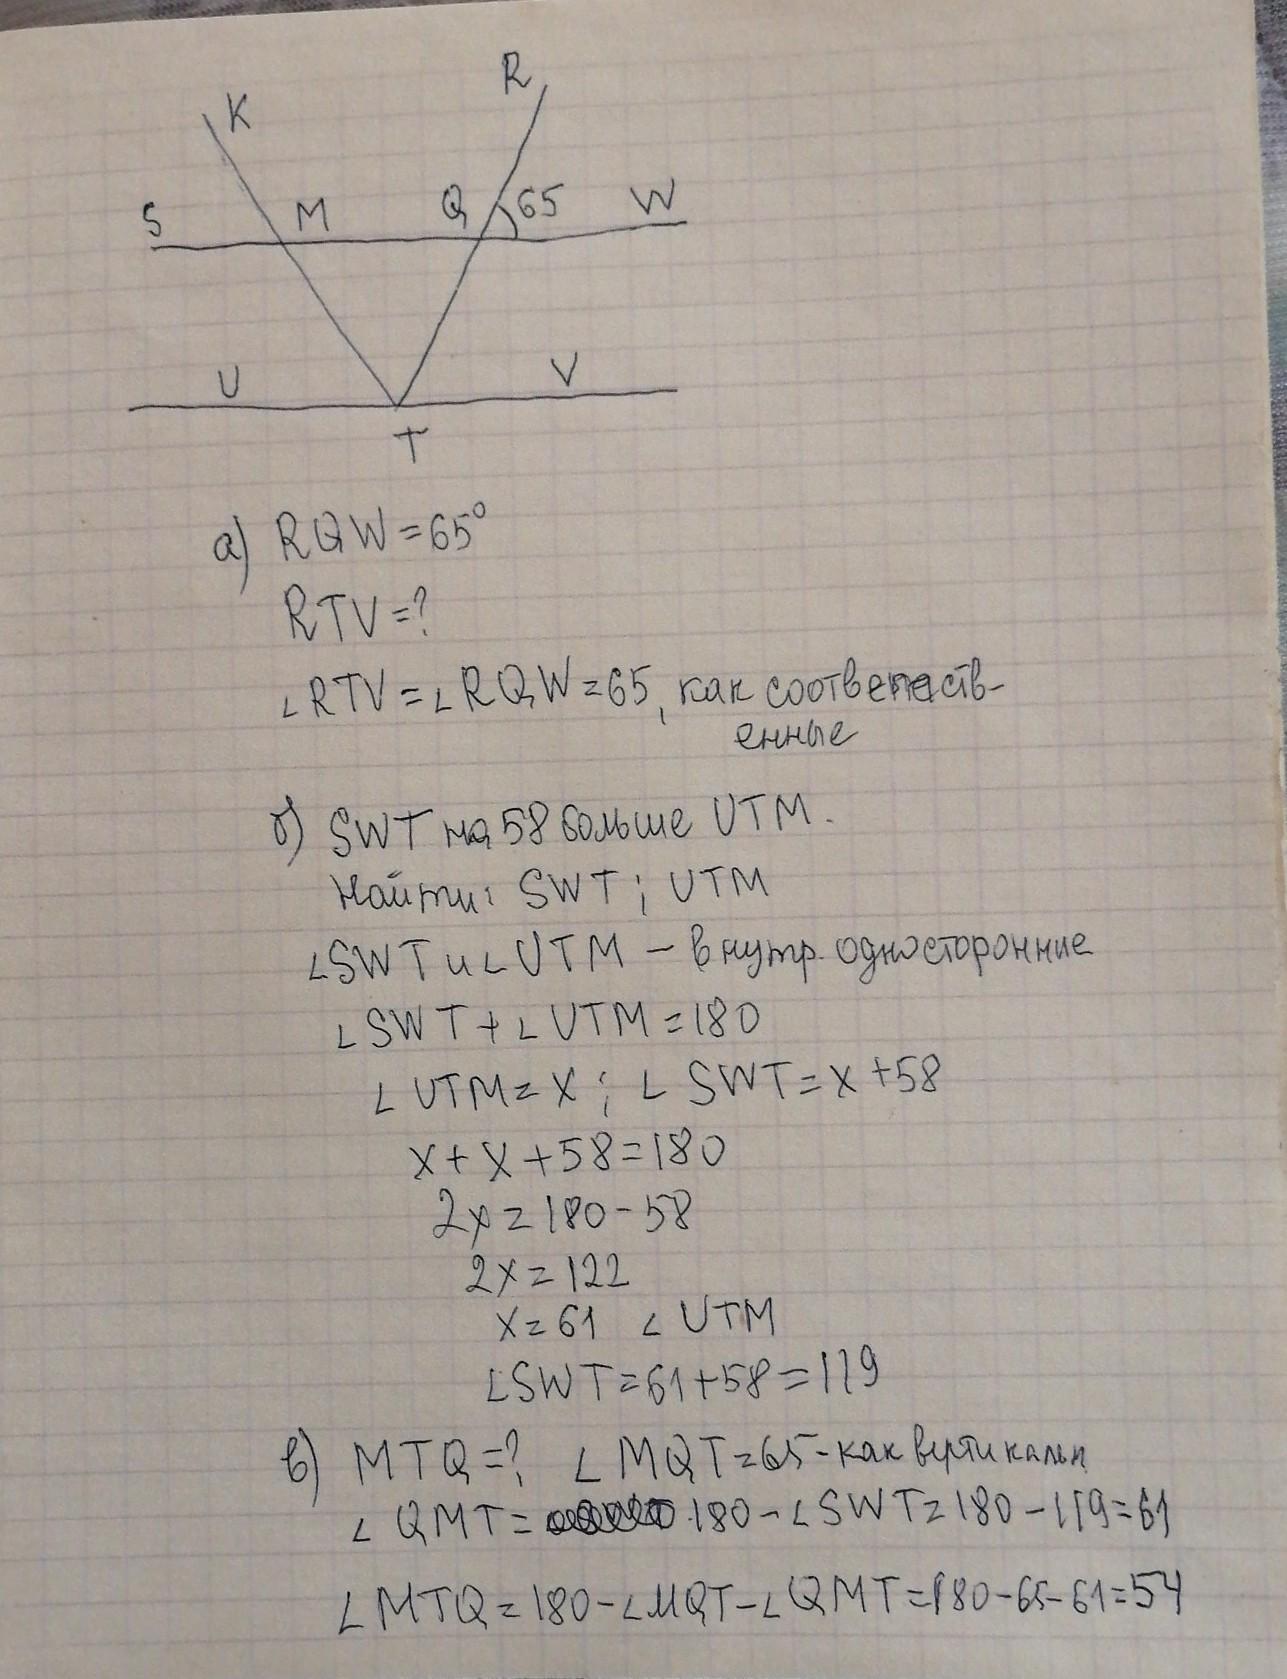 K
R
S
M
Q
65
W
U
V
T
а) RQW=65°
RTV=?
∠RTV=∠RQW=65, как соответств-
енные
б) SWT на 58 больше UTM.
Найти: SWT; UTM
∠SWT и ∠UTM – внутр. односторонние
∠SWT+∠UTM=180
∠UTM=x; ∠SWT=x+58
x+x+58=180
2x=180-58
2x=122
x=61 ∠UTM
∠SWT=61+58=119
в) MTQ=? ∠MQT=65-как вертикальн
∠QMT= 180-∠SWT=180-119=61
∠MTQ=180-∠MQT-∠QMT=180-65-61=54